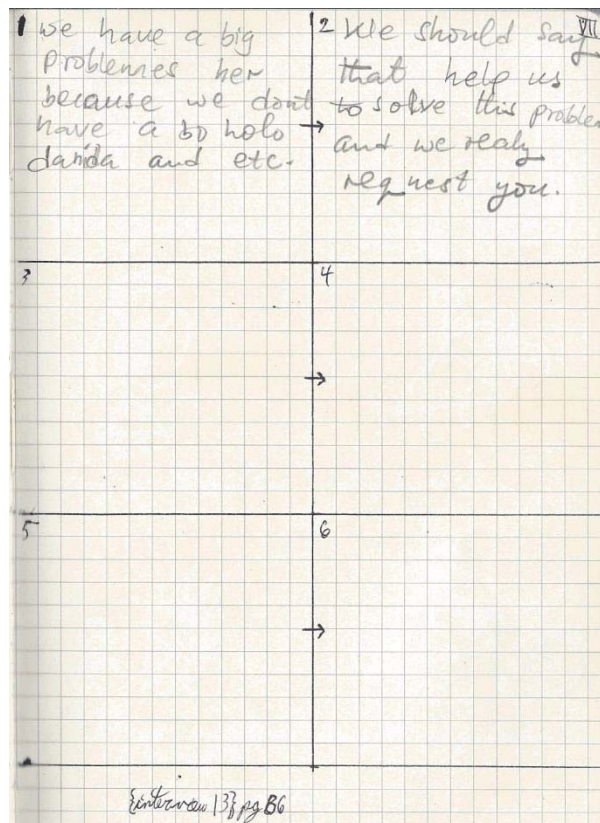 1 we have a big
problemes her
because we dont
have a bo holo
danda and etc.
2 We should say
that help us
to solve this problem
and we realy
request you.
VII
3
4
5
6
{interview 13} pg 86